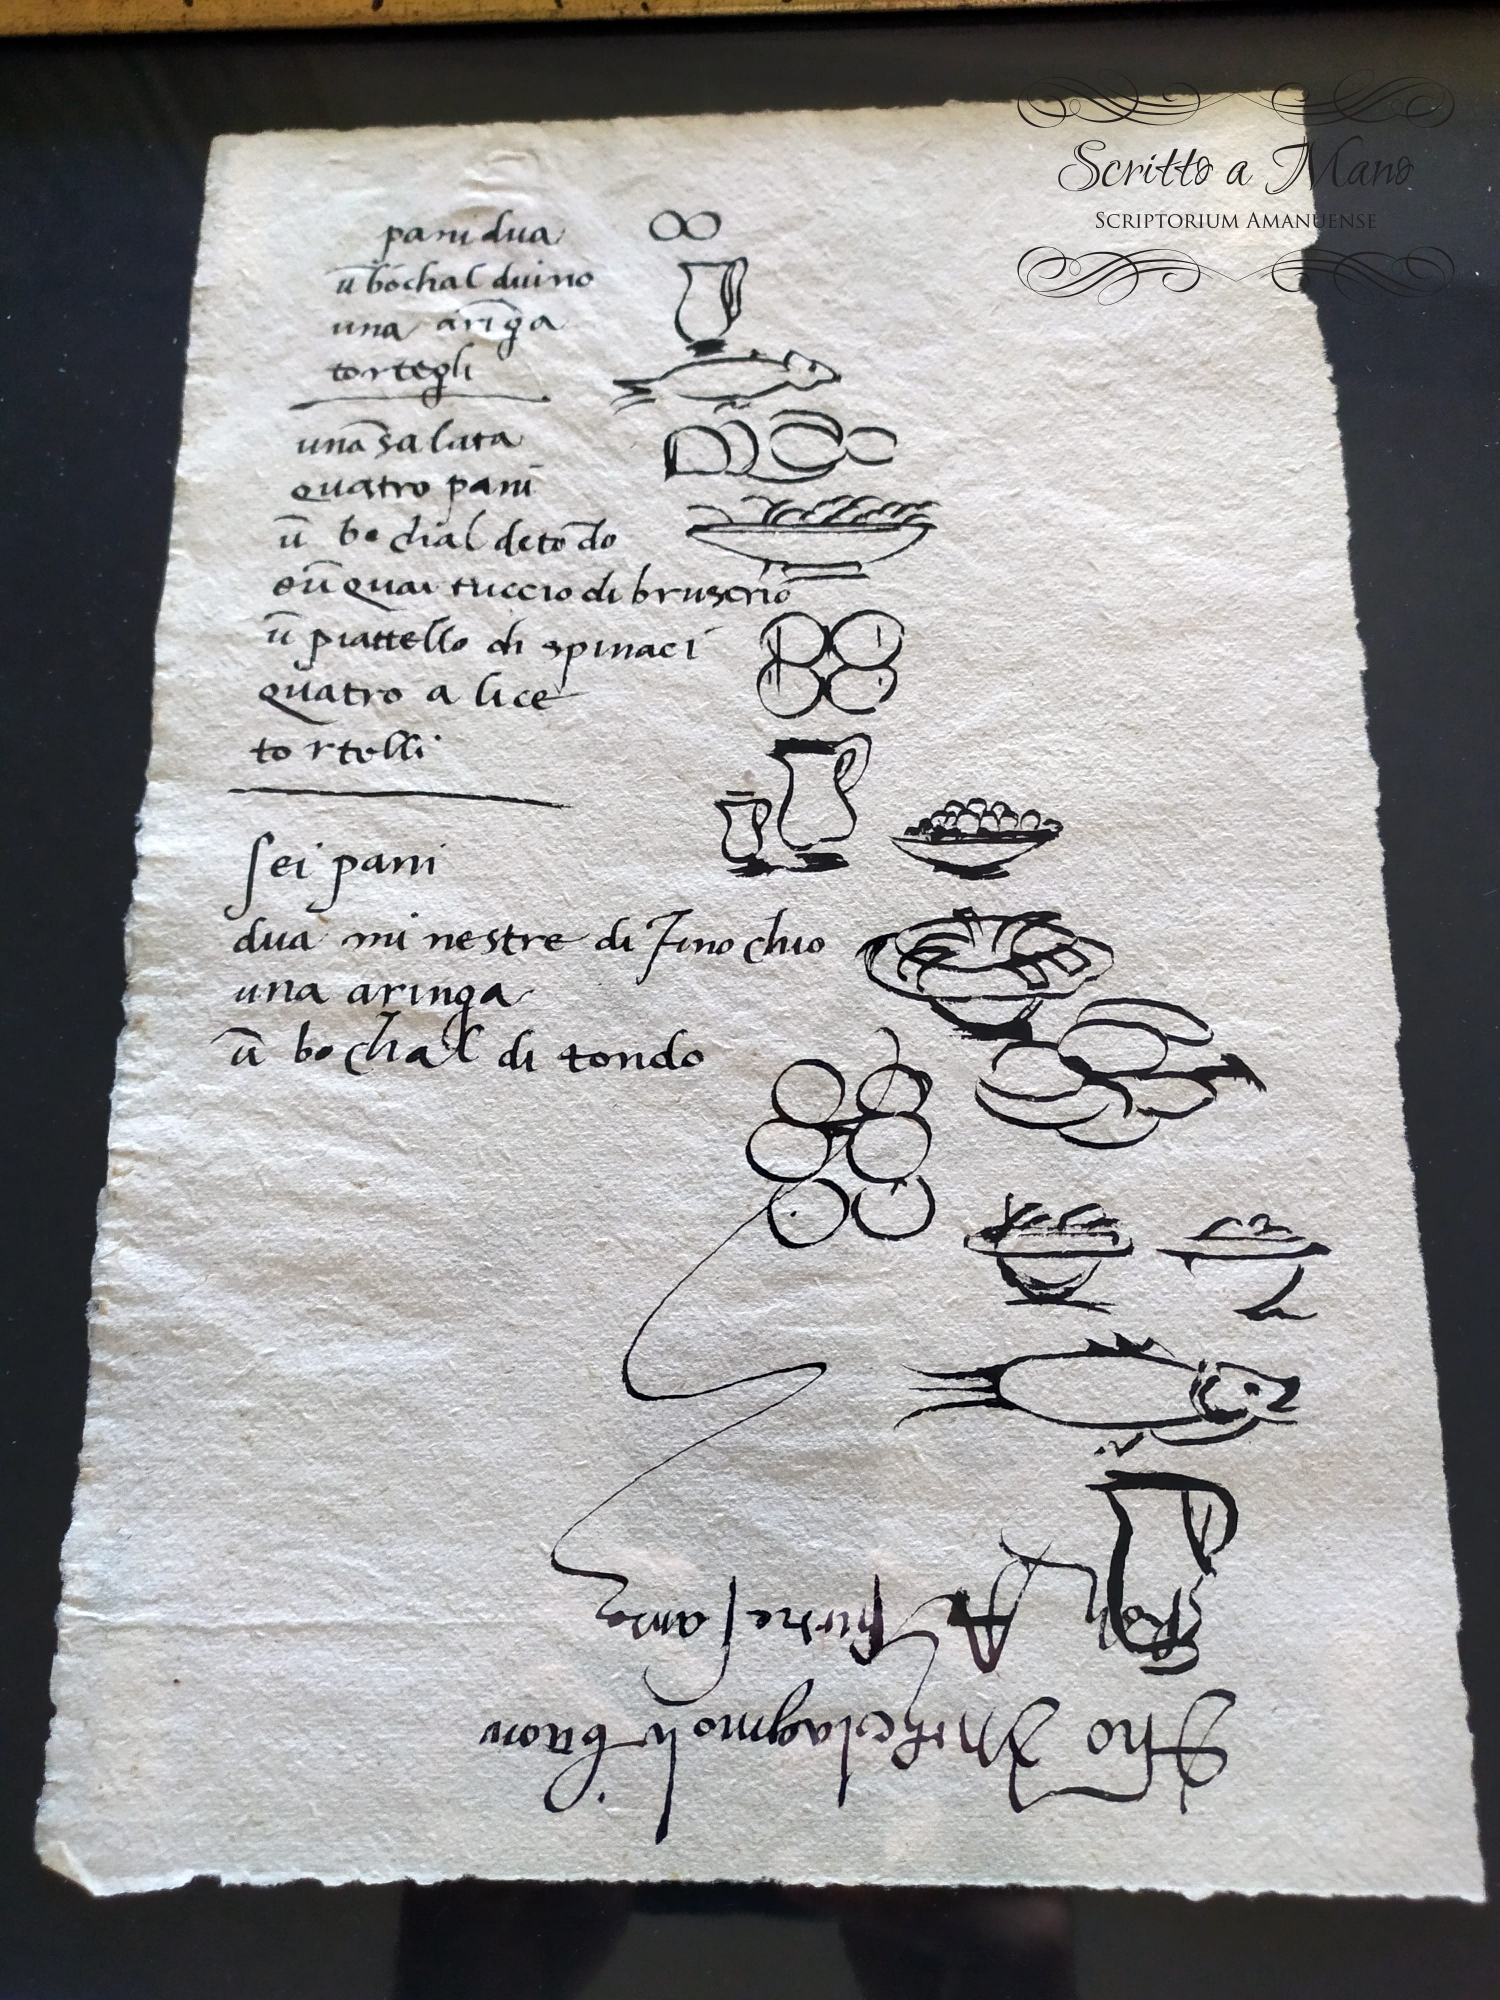 Scritto a Mano
Scriptorium Amanuense
pani dua
ū bochal duino
una aringa
tortegli
una salata
quatro pani
ū bochal detōdo
eū quartuccio di bruscrio
ū piattello di spinaci
quatro alice
tortelli
sei pani
dua minestre di finochio
una aringa
ū bochal di tondo